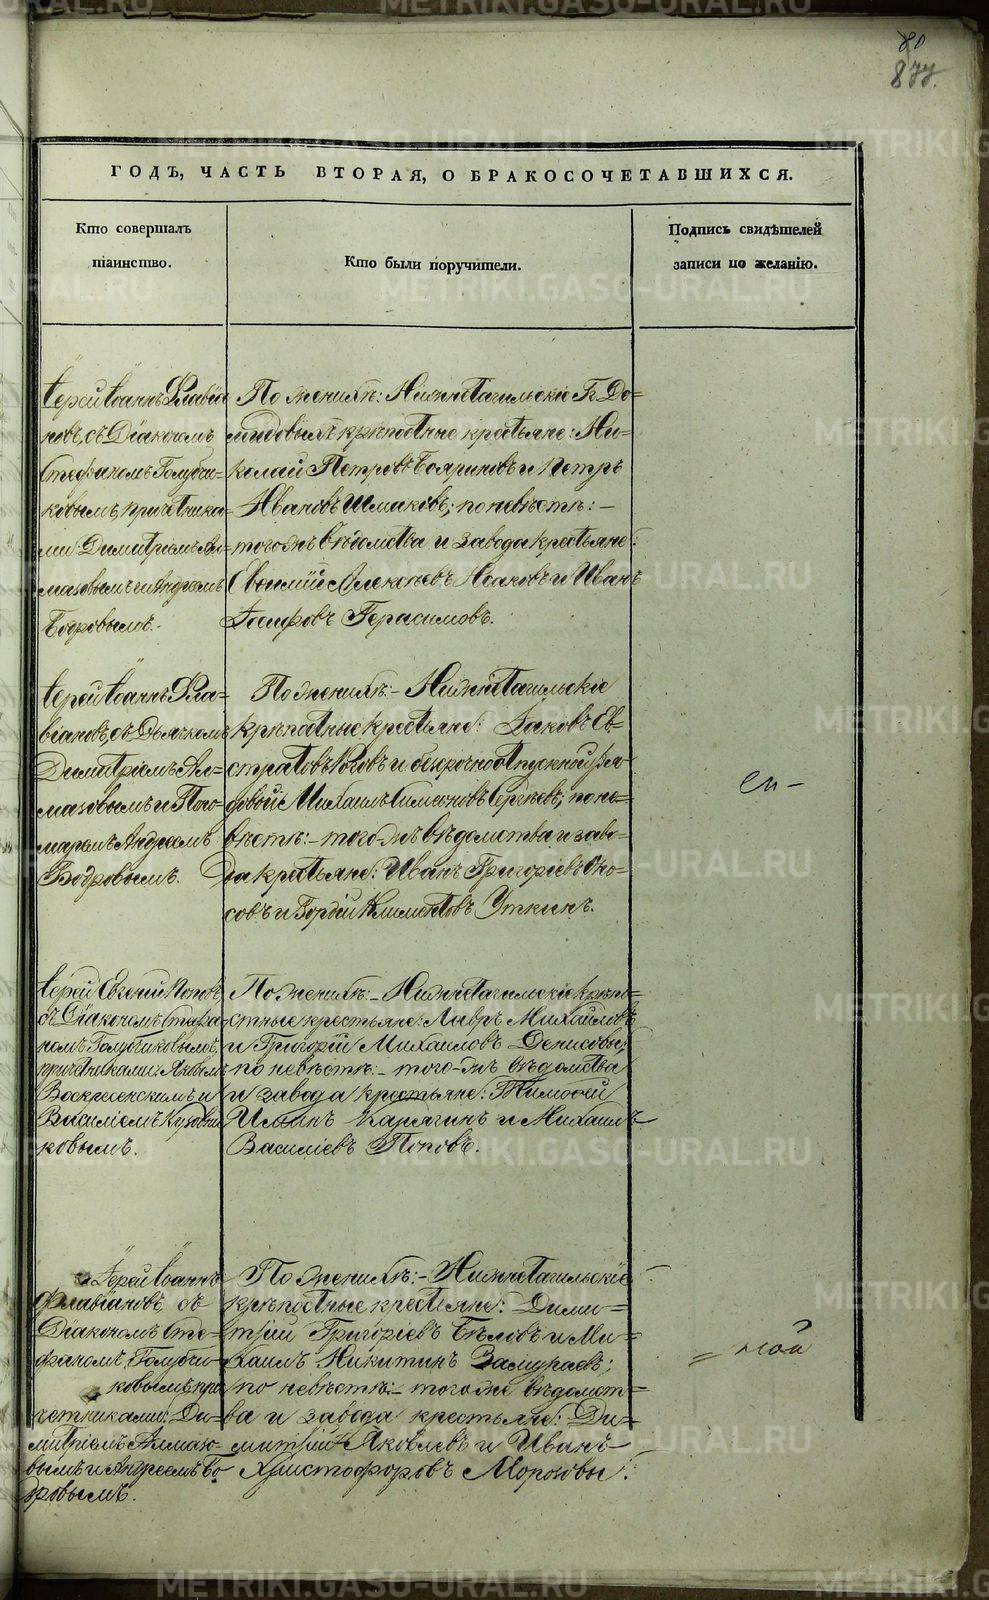 80
877.
ГОДЪ, ЧАСТЬ ВТОРАЯ, О БРАКОСОЧЕТАВШИХСЯ.
Кто совершалъ
таинство.
Кто были поручители.
Подпись свидѣтелей
записи по желанію.
Іерей Іоаннъ Флавіа
новъ, съ Діакономъ
Стефаномъ Голубчи-
ковымъ, причетника-
ми Димитріемъ Ал-
мазовымъ и Андреемъ
Бодровымъ.
По женихѣ: Нижнетагильскіе Г. Де-
мидовыхъ крѣпостные крестьяне: Ни-
колай Петровъ Бояриновъ и Петръ
Ивановъ Шмаковъ; по невѣстѣ: –
того-жъ вѣдомства и завода крестьяне:
Алексѣевъ Исаковъ и Иванъ
Іосифовъ Герасимовъ.
Іерей Іоаннъ Фла-
віановъ, съ Дьячкомъ
Димитріемъ Ал-
мазовымъ и Поно-
маремъ Андреемъ
Бодровымъ.
По женихѣ: – Нижнетагильскіе
крѣпостные крестьяне: Іаковъ Ев-
стратовъ Роговъ и безсрочноотпускной ря-
довой Михаилъ Симеоновъ Сергѣевъ; по не-
вѣстѣ: – того-жъ вѣдомства и заво-
да крестьяне: Иванъ Григоріевъ
совъ и Гордій Климентовъ Уткинъ.
Іерей Евгеній Поповъ
съ Діакономъ Стефа
номъ Голубчиковымъ,
причетниками: Яковомъ
Воскресенскимъ и
Василіемъ Кузовни
ковымъ.
По женихѣ: – Нижнетагильскіе крѣпо-
стные крестьяне: Лавръ Михайловъ
и Григорій Михаиловъ Денисовы;
по невѣстѣ: – того-жъ вѣдомства
и завода крестьяне: Тимофей
Ильинъ Карягинъ и Михаилъ
Василіевъ Поповъ.
Іерей Іоаннъ
Флавіановъ съ
Діакономъ Сте-
фаномъ Голубчи-
ковымъ, при
четниками: Ди-
митріемъ Алмазо-
вымъ и Андреемъ Бо
дровымъ.
По женихѣ: – Нижнетагильскіе
крѣпостные крестьяне: Дими-
трій Григоріевъ Бѣловъ и Ми-
хаилъ Никитинъ
по невѣстѣ: – того же вѣдомст-
ва и завода крестьяне: Ди-
митрій Яковлевъ и Иванъ
Христофоровъ Морозовы.
METRIKI.GASO-URAL.RU